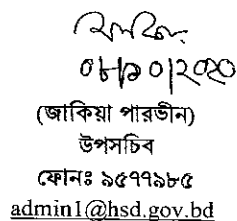 ০৮/১০/২০২০
(জাকিয়া পারভীন)
উপসচিব
ফোনঃ ৯৫৭৭৯৮৫
admin1@hsd.gov.bd